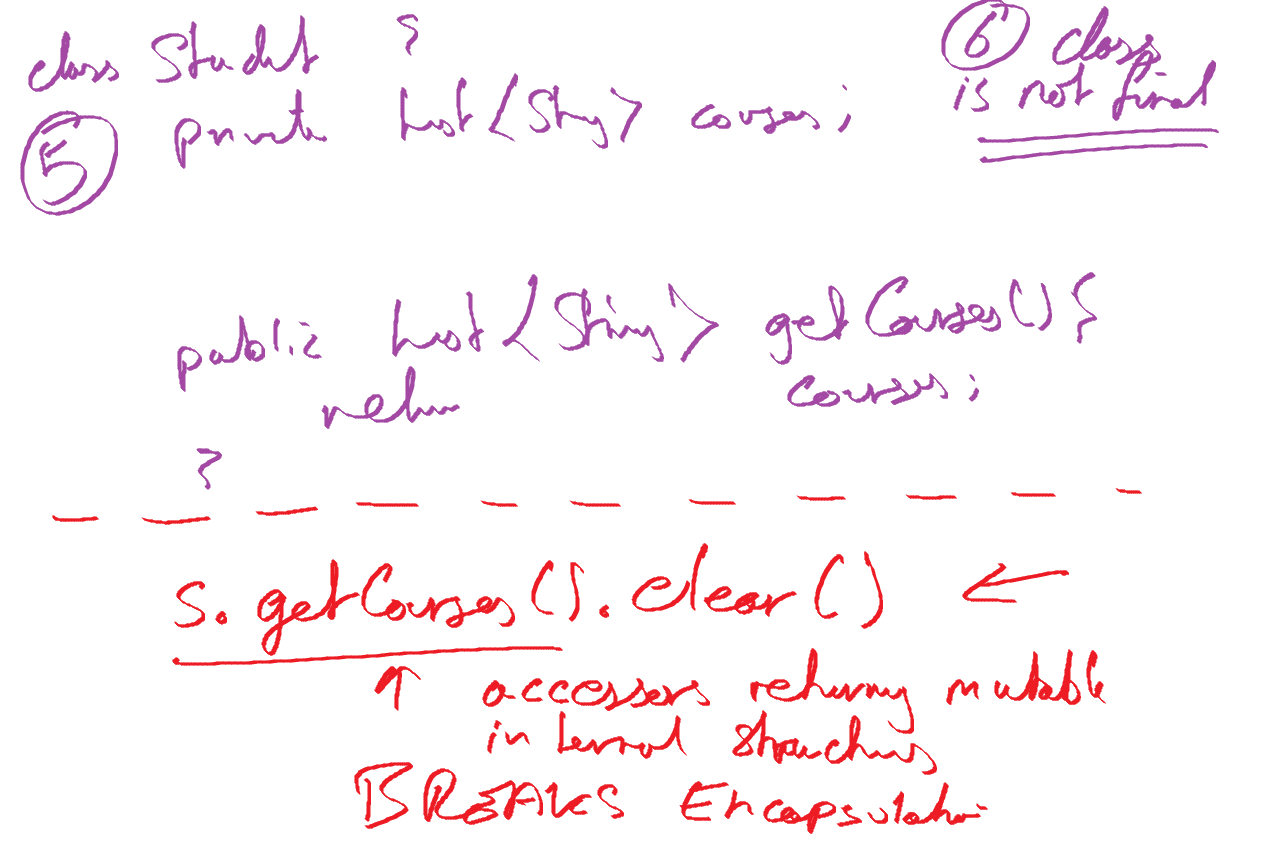 class Student {
⑤ private List<String> courses;
⑥ class
is not final
public List<String> getCourses() {
return courses;
}
s.getCourses().clear() ←
↑ accessers returning mutable
internal structures
BREAKS Encapsulation